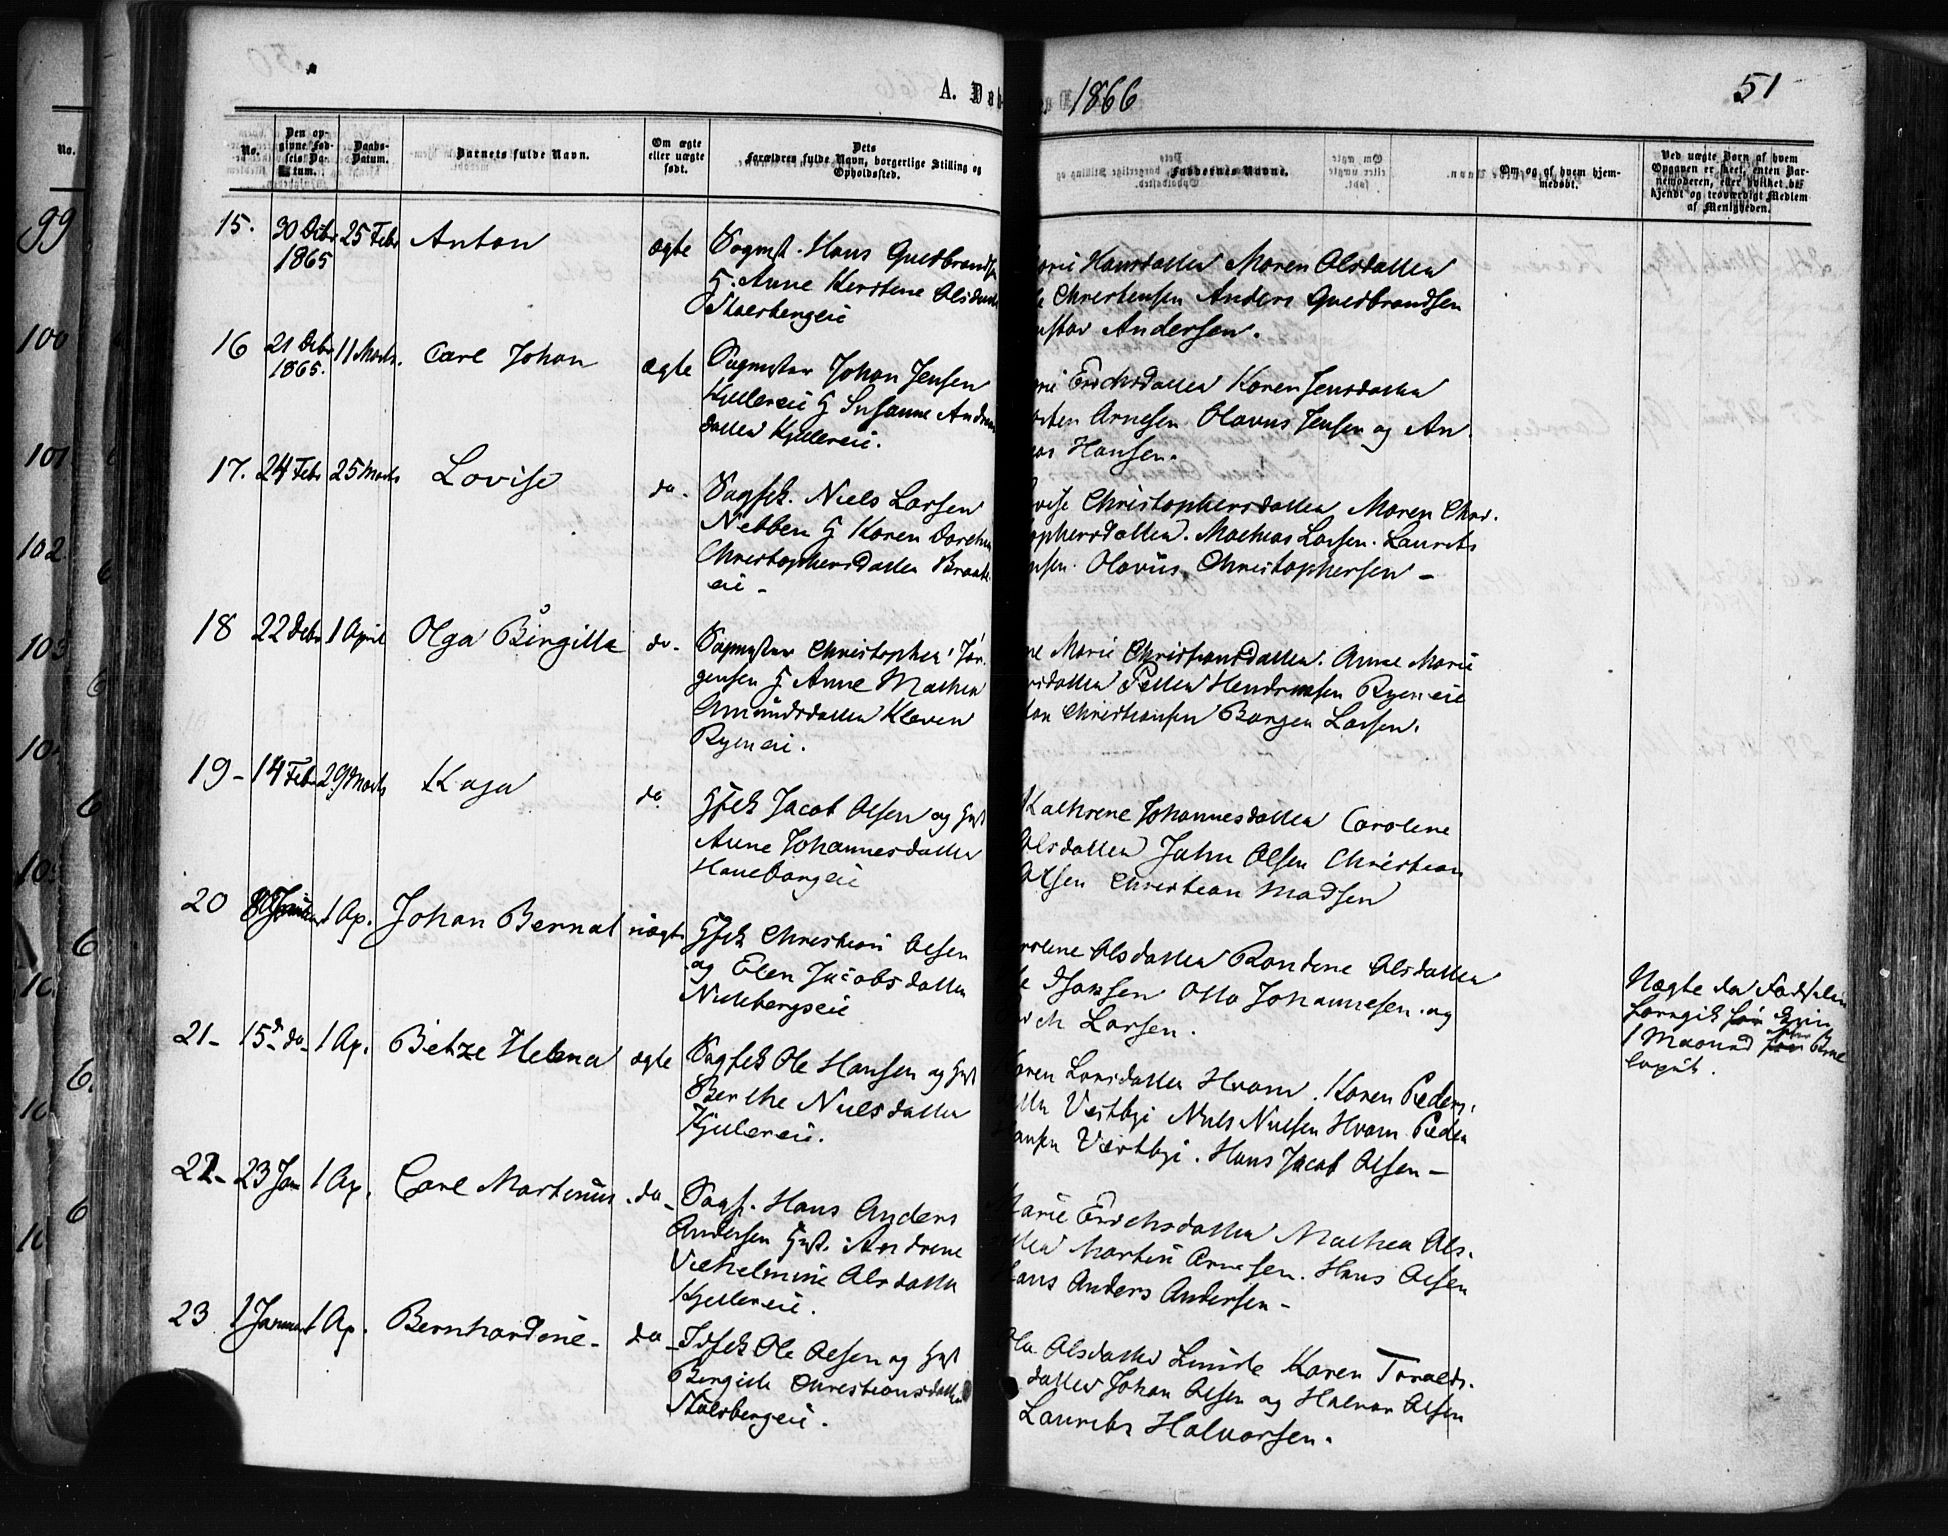 A. Døb
1866
51
No.
No.
Den op-
givne Fød-
sels Da-
tum.
Daabs-
Datum.
Barnets fulde Navn.
Om ægte
eller uægte
født.
Dets
Forældres fulde Navn, borgerlige Stilling og
Opholdssted.
Faddernes Navne.
Om og af hvem hjem-
medøbt.
Ved uægte Børn af hvem
Opgaven er skeet, enten Bar-
nemoderen, eller hvilket be-
kjendt og troværdigt Medlem
af Menigheden.
99
100
101
102
103
15. 30 Decbr 25 Febr Anton ægte Sagmst. Hans Guldbrandsen
1865
G. Anne Kerstene Olsdatter
Stalsbergeie
Marie Hansdatter Maren Olsdatter
Christensen Anders Guldbrandsen
Gustav Andersen.
16 21 Decbr 11 Marts. Carl Johan ægte Sagmster Johan Jensen
1865.
Kjellereie G Susanne Anders
datter Kjellereie.
Erichsdatter Karen Jensdatter
Morten Arnesen Olavus Jensen og An-
Hansen.
17. 24 Febr 25 Marts Lovise do. Sagfck. Niels Larsen
Nebben G Karen Dorthea
Christophersdatter Braate
eie -
Lovise Christophersdatter Maren Chri-
stophersdatter. Mathias Larsen. Laurits
Olavus Christophersen -
18 22 Decbr 1 April Olga Birgitte do. Sagmster Christopher Jør-
gensen G Anne Mathea
Amundsdatter Kloven
Ryeneie.
Marie Christiansdatter. Anne Marie
datter Petter Hendriksen Ryeneie
Christiansen Borger Larsen.
19- 14 Febr 29 Marts Kaja do. Gfck Jacob Olsen og Gust
Anne Johannesdatter
Haneborgeie
Kathrine Johannesdatter Caroline
Olsdatter John Olsen Christian
Olsen Christian Madsen
20 1 Ap. Johan Bernat uægte Gfck Christian Olsen
og Elen Jacobsdatter
Nittebergseie
Olsdatter Randine Olsdatter
Otto Johannesen. og
Larsen.
Uægte da Fødselen
foregik
1 Maaned
21- 15de do 1 Ap. Betze Helena ægte Sagfck Ole Hansen og Gust
Berthe Nielsdatter
Kjellereie.
Karen Larsdatter Hvam. Karen Peders-
datter Vestbye Niels Nielsen Hvam Peder
Hansen Vestbye. Hans Jacob Olsen -
22- 23 Jan 1 Ap. Carl Martinius do. Sagf. Hans Anders
Andersen Gust. Andrine
Vilhelmine Olsdatter
Kjellereie.
Marie Erichsdatter Mathea Ols-
datter Martin Arnesen. Hans Olsen
Hans Anders Andersen -
23 1 Januar 1 Ap. Bernhardine - do - Idfck Ole Olsen og Gust
Birgitte Christiansdatter
Stalsbergeie.
Olsdatter Linde Karen Toralds-
datter Johan Olsen og Halvor Olsen
Laurits Halvorsen.